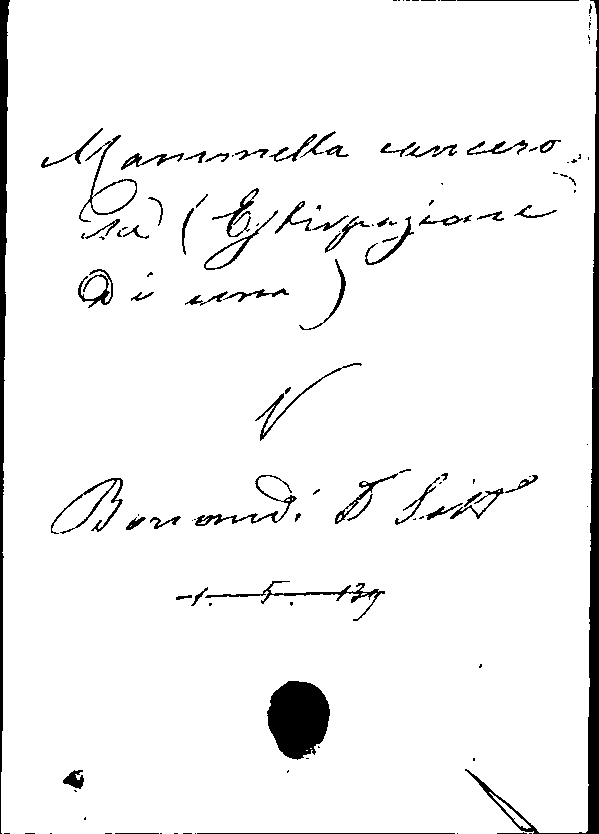 Mammella cancero
sa (Estirpazione
di una)
V
Borrandi D
1. 5. 139